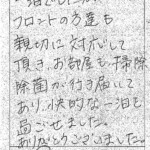 フロントの方達も
親切に対応して
頂き、お部屋も掃除
除菌が行き届いて
おり、快的な一泊を
過ごせました。
ありがとうございました。